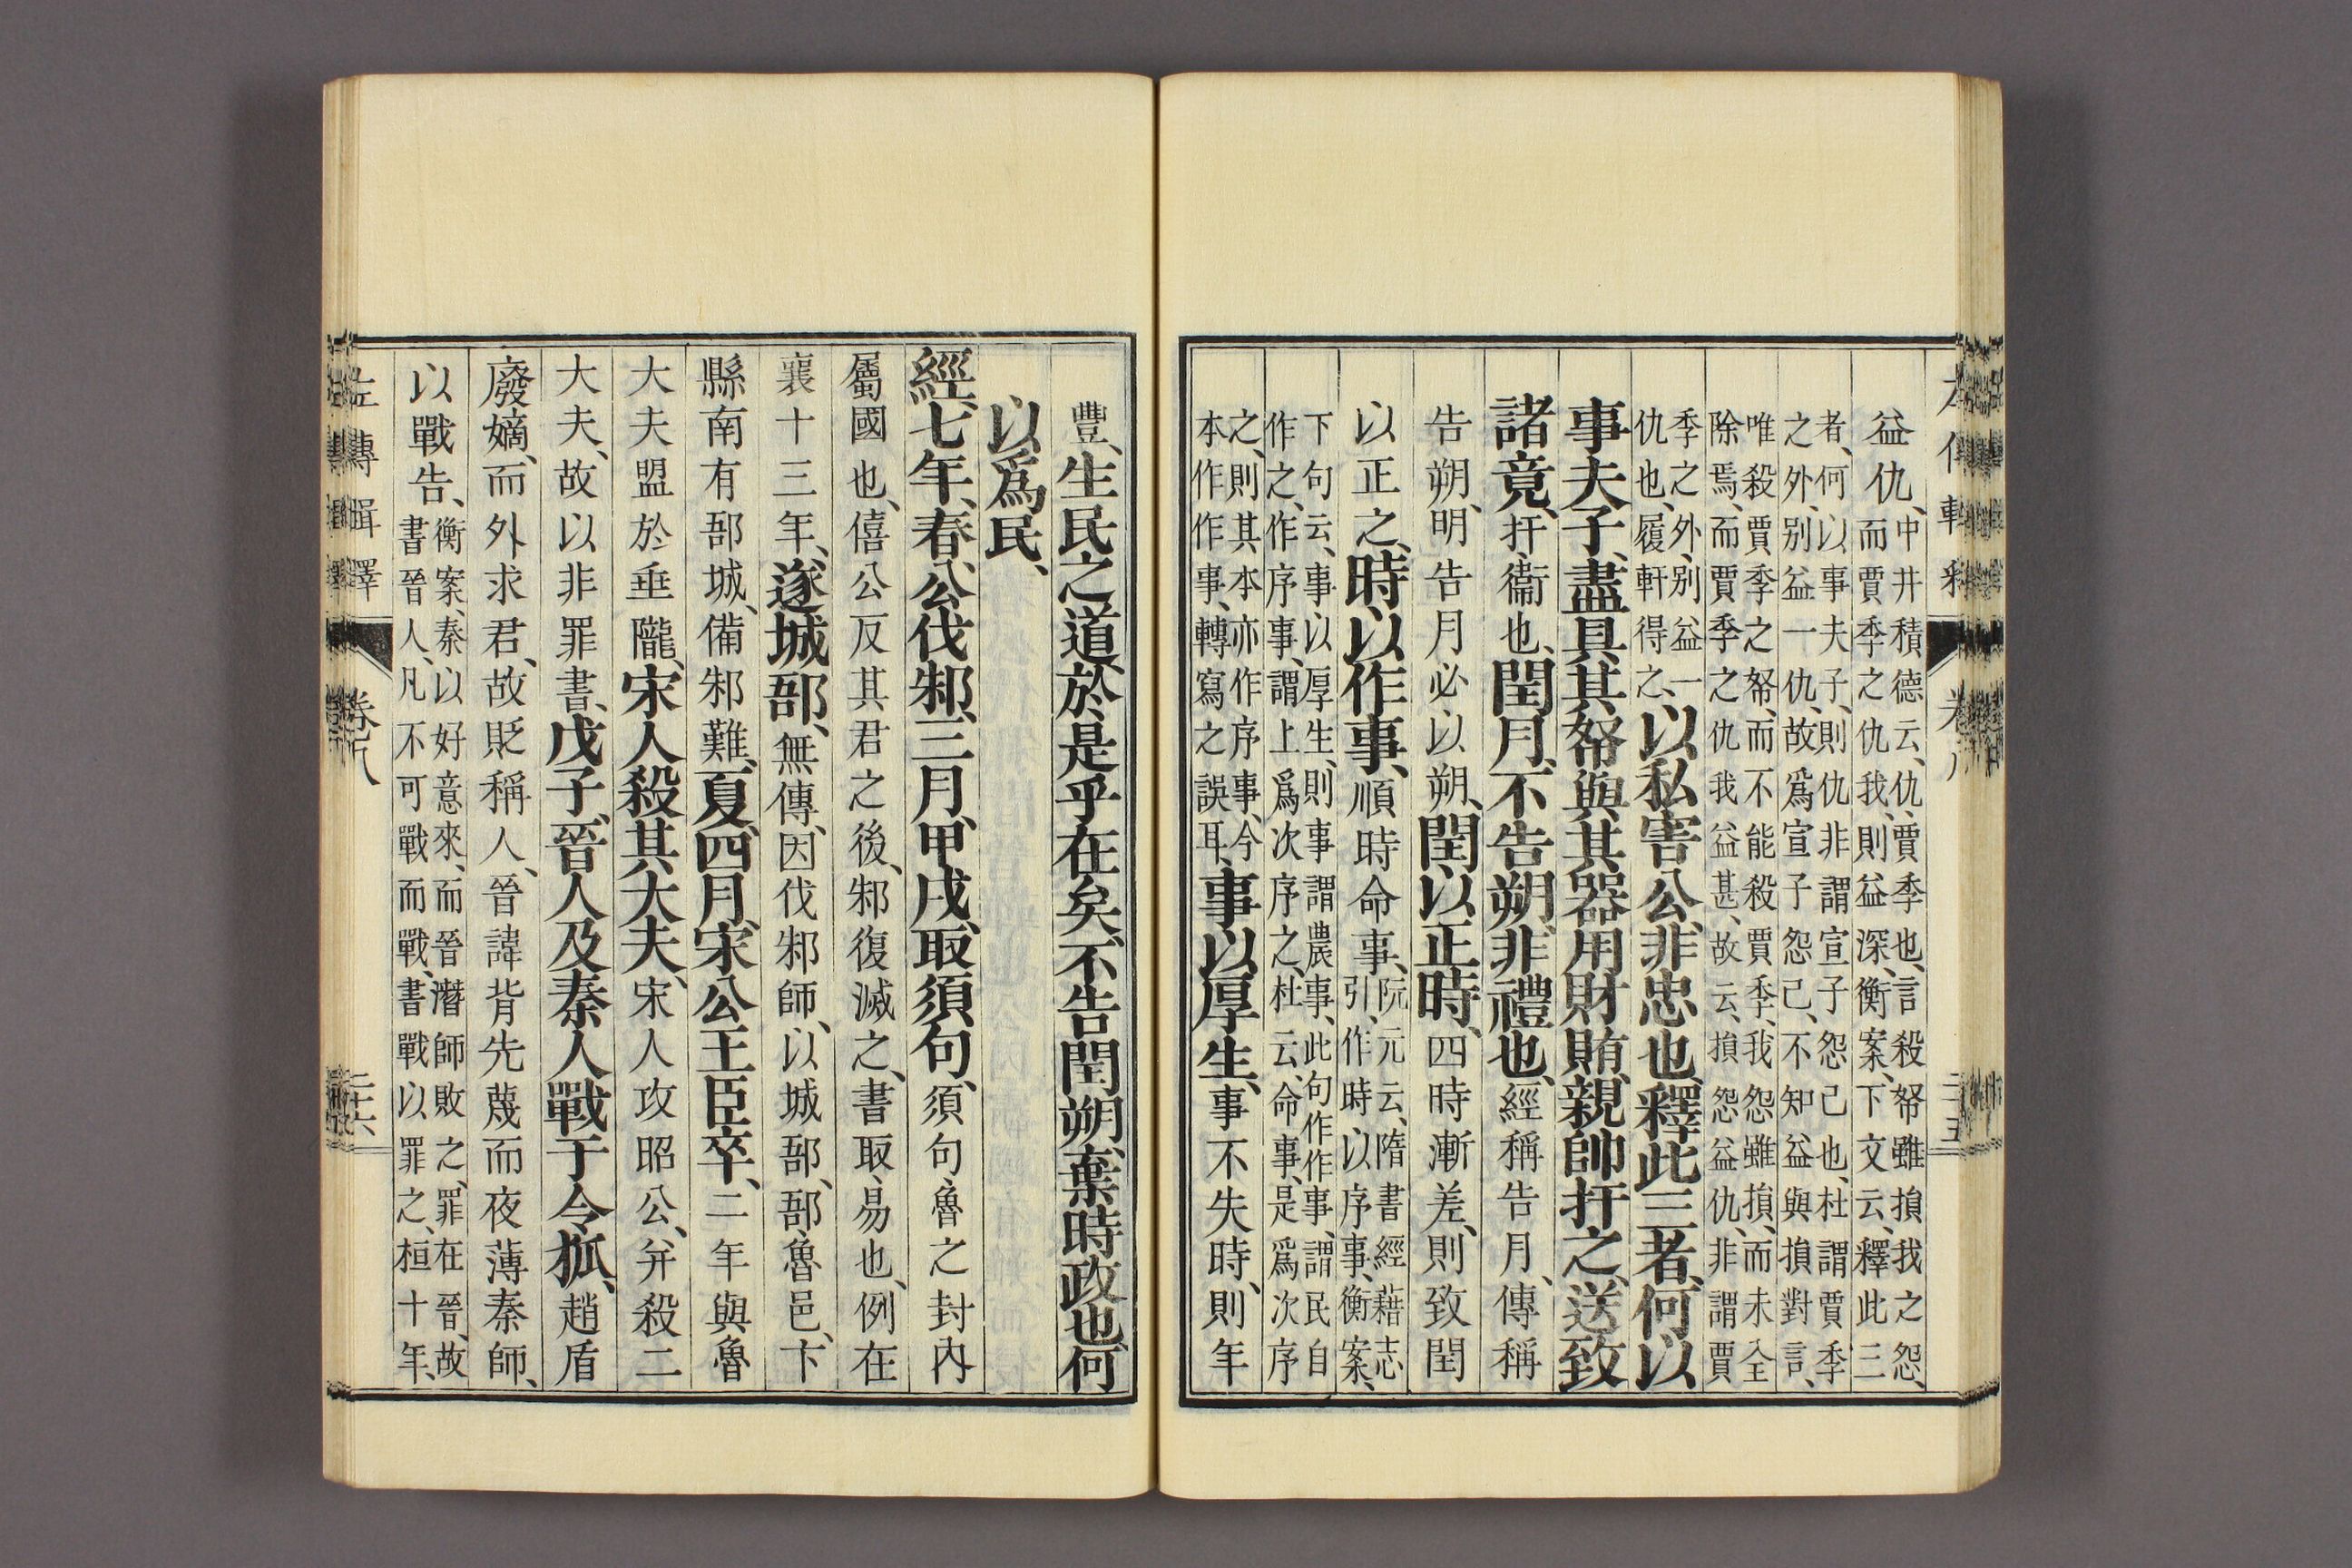 益仇、中井積德云、仇、賈季也、言殺帑雖損我之怨、
而賈季之仇我、則益深、衡案、下文云、釋此三
者、何以事夫子、則仇非謂宣子怨己也、杜謂賈季
之外、別益一仇、故爲宣子怨己、不知益與損對言、
唯殺賈季之帑、而不能殺賈季、我怨雖損、而未全
除焉、而賈季之仇我益甚、故云、損怨益仇、非謂賈
季之外、別益一
仇也、履軒得之、以私害公、非忠也、釋此三者、何以
事夫子、盡具其帑與其器用財賄、親帥扞之、送致
諸竟、扞、衞也、閏月、不告朔、非禮也、經稱告月、傳稱
告朔、明告月必以朔、閏以正時、四時漸差、則致閏
以正之、時以作事、順時命事、阮元云、隋書經藉志
引、作時、以序事、衡案、
下句云、事以厚生、則事謂農事、此句作作事、謂民自
作之、作序事、謂上爲次序之、杜云、命事、是爲次序
之、則其本亦作序事、今
本作作事、轉寫之誤耳、事以厚生、事不失時、則年
豐、生民之道、於是乎在矣、不告閏朔、棄時政也、何
以爲民、
經、七年、春、公伐邾、三月、甲戌、取須句、須句、魯之封內
屬國也、僖公反其君之後、邾復滅之、書取、易也、例在
襄十三年、遂城郚、無傳、因伐邾師、以城郚、郚、魯邑、卞
縣南有郚城、備邾難、夏、四月、宋公王臣卒、二年與魯
大夫盟於垂隴、宋人殺其大夫、宋人攻昭公、幷殺二
大夫、故以非罪書、戊子、晉人及秦人戰于令狐、趙盾
廢嫡、而外求君、故貶稱人、晉諱背先蔑而夜薄秦師、
以戰告、衡案、秦以好意來、而晉潛師敗之、罪在晉、故
書晉人、凡不可戰而戰、書戰以罪之、桓十年、
左傳輯釋 卷八 二十六